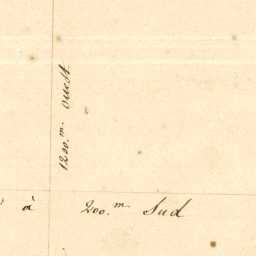 1200.m ouest
à 200.m Sud